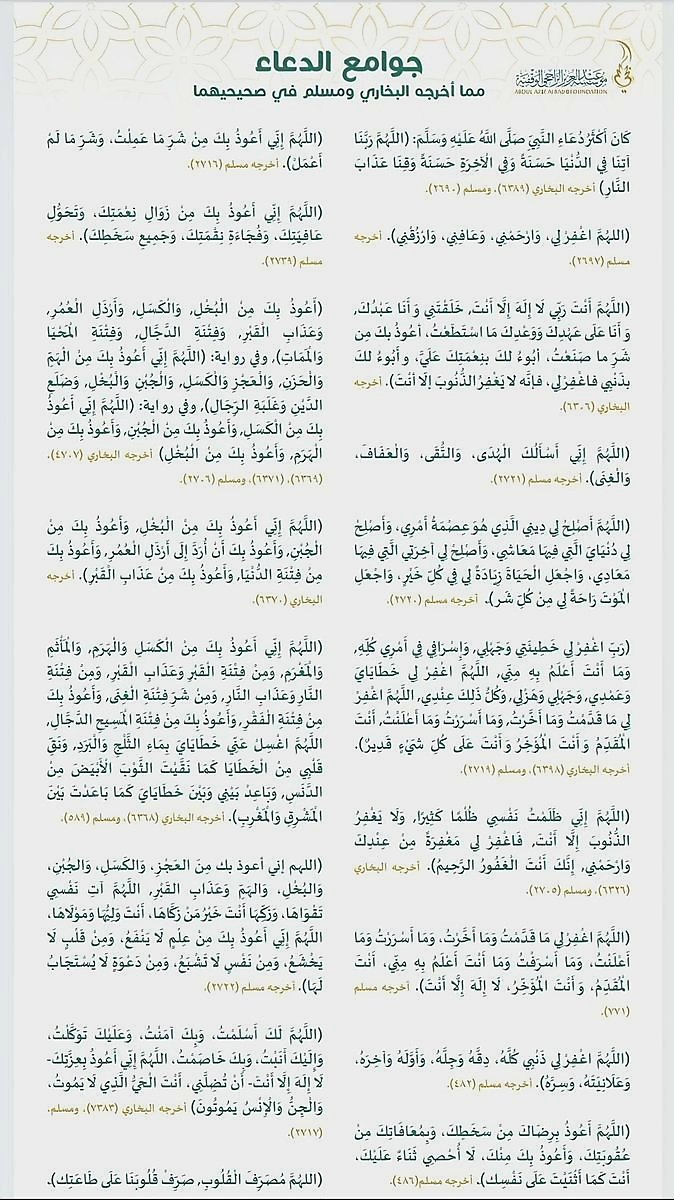 جوامع الدعاء
مما أخرجه البخاري ومسلم في صحيحيهما
مؤسسة عبدالعزيز الراجحي الوقفية
ABDUL AZIZ ALRAJHI FOUNDATION
كَانَ أَكْثَرُ دُعَاءِ النَّبِيِّ صَلَّى اللهُ عَلَيْهِ وَسَلَّمَ: (اللَّهُمَّ رَبَّنَا
آتِنَا فِي الدُّنْيَا حَسَنَةً وَفِي الْآخِرَةِ حَسَنَةً وَقِنَا عَذَابَ
النَّارِ) أخرجه البخاري (٦٣٨٩)، ومسلم (٢٦٩٠).
(اللهُمَّ اغْفِرْ لِي، وَارْحَمْنِي، وَعَافِنِي، وَارْزُقْنِي). أخرجه
مسلم (٢٦٩٧).
(اللَّهُمَّ أَنْتَ رَبِّي لَا إِلَهَ إِلَّا أَنْتَ, خَلَقْتَنِي وَأَنَا عَبْدُكَ,
وَأَنَا عَلَى عَهْدِكَ وَوَعْدِكَ مَا اسْتَطَعْتُ، أَعُوذُ بكَ مِن
شَرِّ ما صَنَعْتُ، أبُوءُ لكَ بنِعْمَتِكَ عَلَيَّ، وأَبُوءُ لكَ
بذَنْبِي فاغْفِرْ لِي، فإنَّه لا يَغْفِرُ الذُّنُوبَ إلَّا أنْتَ). أخرجه
البخاري (٦٣٠٦).
(اللَّهُمَّ إِنِّي أَسْأَلُكَ الْهُدَى، وَالتُّقَى، وَالْعَفَافَ،
وَالْغِنَى). أخرجه مسلم (٢٧٢١).
(اللَّهُمَّ أَصْلِحْ لِي دِينِي الَّذِي هُوَ عِصْمَةُ أَمْرِي، وَأَصْلِحْ
لِي دُنْيَايَ الَّتِي فِيهَا مَعَاشِي، وَأَصْلِحْ لِي آخِرَتِي الَّتِي فِيهَا
مَعَادِي، وَاجْعَلِ الْحَيَاةَ زِيَادَةً لِي فِي كُلِّ خَيْرٍ، وَاجْعَلِ
الْمَوْتَ رَاحَةً لِي مِنْ كُلِّ شَر). أخرجه مسلم (٢٧٢٠).
(رَبِّ اغْفِرْ لِي خَطِيئَتِي وَجَهْلِي, وَإِسْرَافِي فِي أَمْرِي كُلِّهِ,
وَمَا أَنْتَ أَعْلَمُ بِهِ مِنِّي, اللَّهُمَّ اغْفِرْ لِي خَطَايَايَ
وَعَمْدِي, وَجَهْلِي وَهَزْلِي, وَكُلُّ ذَلِكَ عِنْدِي, اللَّهُمَّ اغْفِرْ
لِي مَا قَدَّمْتُ وَمَا أَخَّرْتُ, وَمَا أَسْرَرْتُ وَمَا أَعْلَنْتُ, أَنْتَ
الْمُقَدِّمُ وَأَنْتَ الْمُؤَخِّرُ وَأَنْتَ عَلَى كُلِّ شَيْءٍ قَدِيرٌ).
أخرجه البخاري (٦٣٩٨)، ومسلم (٢٧١٩).
(اللَّهُمَّ إِنِّي ظَلَمْتُ نَفْسِي ظُلْمًا كَثِيرًا, وَلَا يَغْفِرُ
الذُّنُوبَ إِلَّا أَنْتَ, فَاغْفِرْ لِي مَغْفِرَةً مِنْ عِنْدِكَ
وَارْحَمْنِي, إِنَّكَ أَنْتَ الْغَفُورُ الرَّحِيمُ). أخرجه البخاري
(٦٣٢٦)، ومسلم (٢٧٠٥).
(اللَّهُمَّ اغْفِرْ لِي مَا قَدَّمْتُ وَمَا أَخَّرْتُ، وَمَا أَسْرَرْتُ وَمَا
أَعْلَنْتُ، وَمَا أَسْرَفْتُ وَمَا أَنْتَ أَعْلَمُ بِهِ مِنِّي، أَنْتَ
الْمُقَدِّمُ، وَأَنْتَ الْمُؤَخِّرُ، لَا إِلَهَ إِلَّا أَنْتَ). أخرجه مسلم
(٧٧١).
(اللَّهُمَّ اغْفِرْ لِي ذَنْبِي كُلَّهُ، دِقَّهُ وَجِلَّهُ، وَأَوَّلَهُ وَآخِرَهُ،
وَعَلَانِيَتَهُ، وَسِرَّهُ). أخرجه مسلم (٤٨٢).
(اللَّهُمَّ أَعُوذُ بِرِضَاكَ مِنْ سَخَطِكَ، وَبِمُعَافَاتِكَ مِنْ
عُقُوبَتِكَ، وَأَعُوذُ بِكَ مِنْكَ، لَا أُحْصِي ثَنَاءً عَلَيْكَ،
أَنْتَ كَمَا أَثْنَيْتَ عَلَى نَفْسِكَ). أخرجه مسلم (٤٨٦)
(اللَّهُمَّ إِنِّي أَعُوذُ بِكَ مِنْ شَرِّ مَا عَمِلْتُ، وَشَرِّ مَا لَمْ
أَعْمَلْ). أخرجه مسلم (٢٧١٦).
(اللَّهُمَّ إِنِّي أَعُوذُ بِكَ مِنْ زَوَالِ نِعْمَتِكَ، وَتَحَوُّلِ
عَافِيَتِكَ، وَفُجَاءَةِ نِقْمَتِكَ، وَجَمِيعِ سَخَطِكَ). أخرجه
مسلم (٢٧٣٩).
(أَعُوذُ بِكَ مِنْ الْبُخْلِ, وَالْكَسَلِ, وَأَرْذَلِ الْعُمُرِ,
وَعَذَابِ الْقَبْرِ, وَفِتْنَةِ الدَّجَّالِ, وَفِتْنَةِ الْمَحْيَا
وَالْمَمَاتِ), وفي رواية: (اللَّهُمَّ إِنِّي أَعُوذُ بِكَ مِنْ الْهَمِّ
وَالْحَزَنِ, وَالْعَجْزِ وَالْكَسَلِ, وَالْجُبْنِ وَالْبُخْلِ, وَضَلَعِ
الدَّيْنِ وَغَلَبَةِ الرِّجَالِ), وفي رواية: (اللَّهُمَّ إِنِّي أَعُوذُ
بِكَ مِنْ الْكَسَلِ, وَأَعُوذُ بِكَ مِنْ الْجُبْنِ, وَأَعُوذُ بِكَ مِنْ
الْهَرَمِ, وَأَعُوذُ بِكَ مِنْ الْبُخْلِ) أخرجه البخاري (٤٧٠٧)
(٦٣٦٩)، (٦٣٧١)، ومسلم (٢٧٠٦).
(اللَّهُمَّ إِنِّي أَعُوذُ بِكَ مِنْ الْبُخْلِ, وَأَعُوذُ بِكَ مِنْ
الْجُبْنِ, وَأَعُوذُ بِكَ أَنْ أُرَدَّ إِلَى أَرْذَلِ الْعُمُرِ, وَأَعُوذُ بِكَ
مِنْ فِتْنَةِ الدُّنْيَا, وَأَعُوذُ بِكَ مِنْ عَذَابِ الْقَبْرِ). أخرجه
البخاري (٦٣٧٠).
(اللَّهُمَّ إِنِّي أَعُوذُ بِكَ مِنْ الْكَسَلِ وَالْهَرَمِ, وَالْمَأْثَمِ
وَالْمَغْرَمِ, وَمِنْ فِتْنَةِ الْقَبْرِ وَعَذَابِ الْقَبْرِ, وَمِنْ فِتْنَةِ
النَّارِ وَعَذَابِ النَّارِ, وَمِنْ شَرِّ فِتْنَةِ الْغِنَى, وَأَعُوذُ بِكَ
مِنْ فِتْنَةِ الْفَقْرِ, وَأَعُوذُ بِكَ مِنْ فِتْنَةِ الْمَسِيحِ الدَّجَّالِ,
اللَّهُمَّ اغْسِلْ عَنِّي خَطَايَايَ بِمَاءِ الثَّلْجِ وَالْبَرَدِ, وَنَقِّ
قَلْبِي مِنْ الْخَطَايَا كَمَا نَقَّيْتَ الثَّوْبَ الْأَبْيَضَ مِنْ
الدَّنَسِ, وَبَاعِدْ بَيْنِي وَبَيْنَ خَطَايَايَ كَمَا بَاعَدْتَ بَيْنَ
الْمَشْرِقِ وَالْمَغْرِبِ). أخرجه البخاري (٦٣٦٨)، ومسلم (٥٨٩).
(اللهم إني أعوذ بك مِنَ العَجْزِ، وَالكَسَلِ، وَالجُبْنِ،
وَالبُخْلِ، وَالهَمِّ وَعَذَابِ القَبْرِ, اللَّهُمَّ آتِ نَفْسِي
تَقْوَاهَا، وَزَكِّهَا أَنْتَ خَيْرُ مَنْ زَكَّاهَا، أَنْتَ وَلِيُّهَا وَمَوْلَاهَا،
اللَّهُمَّ إِنِّي أَعُوذُ بِكَ مِنْ عِلْمٍ لَا يَنْفَعُ، وَمِنْ قَلْبٍ لَا
يَخْشَعُ، وَمِنْ نَفْسٍ لَا تَشْبَعُ، وَمِنْ دَعْوَةٍ لَا يُسْتَجَابُ
لَهَا). أخرجه مسلم (٢٧٢٢).
(اللَّهُمَّ لَكَ أَسْلَمْتُ، وَبِكَ آمَنْتُ، وَعَلَيْكَ تَوَكَّلْتُ،
وَإِلَيْكَ أَنَبْتُ، وَبِكَ خَاصَمْتُ، اللَّهُمَّ إِنِّي أَعُوذُ بِعِزَّتِكَ-
لَا إِلَهَ إِلَّا أَنْتَ- أَنْ تُضِلَّنِي، أَنْتَ الْحَيُّ الَّذِي لَا يَمُوتُ،
وَالْجِنُّ وَالْإِنْسُ يَمُوتُونَ) أخرجه البخاري (٧٣٨٣)، ومسلم.
(٢٧١٧).
(اللَّهُمَّ مُصَرِّفَ الْقُلُوبِ, صَرِّفْ قُلُوبَنَا عَلَى طَاعَتِكِ).